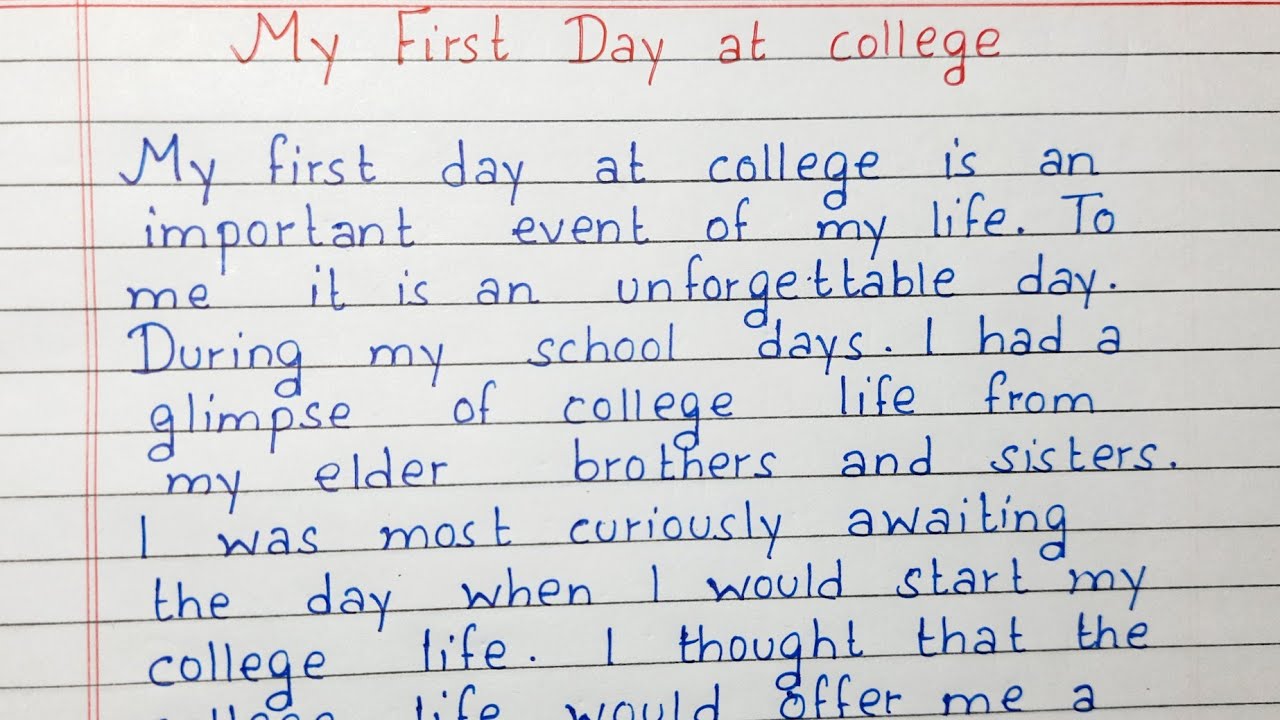 My First Day at college
My first day at college is an
important event of my life. To
me it is an unforgettable day.
During my school days. I had a
glimpse of college life from
my elder brothers and sisters.
I was most curiously awaiting
the day when I would start my
college life. I thought that the
college life would offer me a